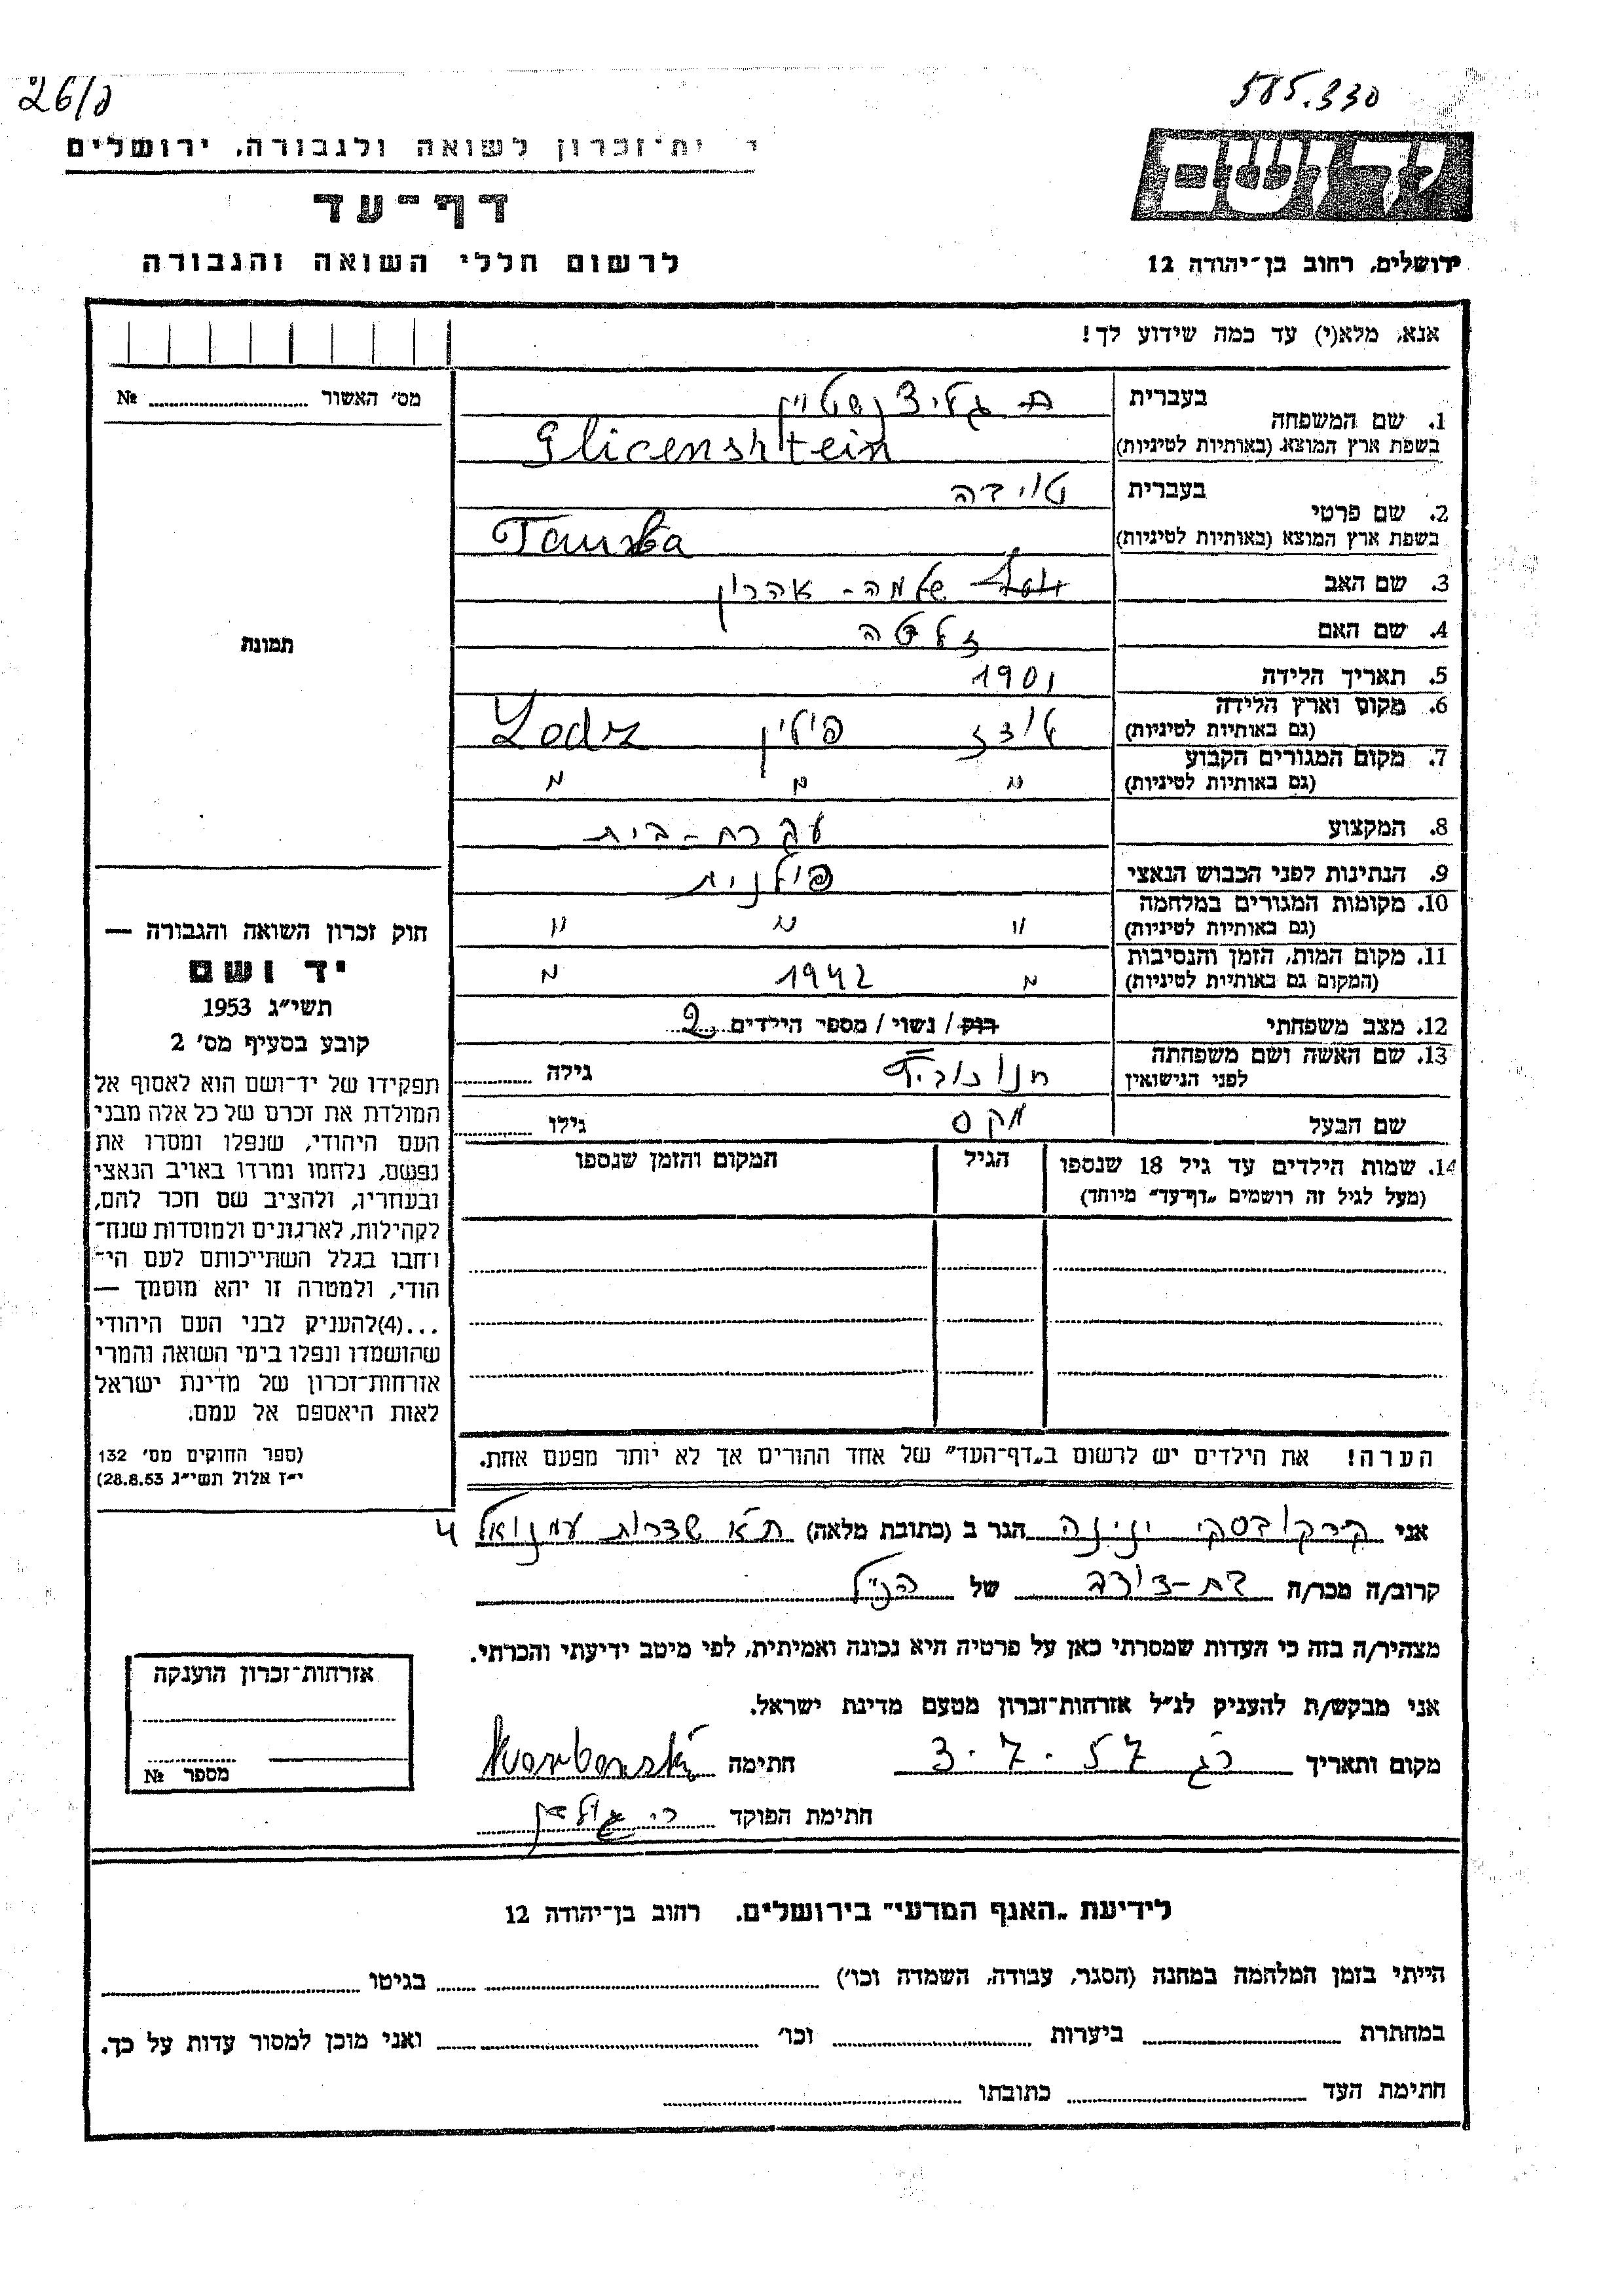 26/д
585.330
י ית־זכרון לשואה ולגבורה, ירושלים
דף־עד
לרשום חללי השואה והגבורה
ירושלים, רחוב בן־יהודה 12
אנא, מלא(י) עד כמה שידוע לך!
מס׳ האשור № 
1. שם המשפחה
בעברית גליצנשטיין
בשפת ארץ המוצא (באותיות לטיניות) Glicenshtein
2. שם פרטי
בעברית
בשפת ארץ המוצא (באותיות לטיניות)
3. שם האב שלמה - אהרון
4. שם האם זלטה
5. תאריך הלידה 1901
6. מקום וארץ הלידה
(גם באותיות לטיניות) לודז פולין Lodz
7. מקום המגורים הקבוע
(גם באותיות לטיניות) " " "
8. המקצוע עקרת-בית
9. הנתינות לפני הכבוש הנאצי פולנית
10. מקומות המגורים במלחמה
(גם באותיות לטיניות) " " "
11. מקום המות, הזמן והנסיבות
(המקום גם באותיות לטיניות) " 1942 "
12. מצב משפחתי רוק / נשוי / מספר הילדים 2
13. שם האשה ושם משפחתה
לפני הנישואין גילה
שם הבעל מקס גילו
14. שמות הילדים עד גיל 18 שנספו
(מעל לגיל זה רושמים „דף־עד״ מיוחד)
הגיל
המקום והזמן שנספו
תמונת
חוק זכרון השואה והגבורה —
יד ושם
תשי״ג 1953
קובע בסעיף מס׳ 2
תפקידו של יד־ושם הוא לאסוף אל
המולדת את זכרם של כל אלה מבני
העם היהודי, שנפלו ומסרו את
נפשם, נלחמו ומרדו באויב הנאצי
ובעחריו, ולהציב שם חכר להם,
לקהילות, לארגונים ולמוסדות שנח־
רחבו בגלל השתייכותם לעם הי־
הודי, ולמטרה זו יהא מוסמך —
...(4)להעניק לבני העם היהודי
שהושמדו ונפלו בימי השואה והמרי
אזרחות־זכרון של מדינת ישראל
לאות היאספם אל עמם.
(ספר החוקים מס׳ 132
י״ז אלול תשי״ג 28.8.53)
הערה! את הילדים יש לרשום ב„דף־העד״ של אחד ההורים אך לא יותר מפעם אחת.
אני ינינה הגר ב (כתובת מלאה) ת״א שדרות עמנואל 4
קרוב/ה מכר/ה בת-דודה של הנ״ל
מצהיר/ה בזה כי העדות שמסרתי כאן על פרטיה היא נכונה ואמיתית, לפי מיטב ידיעתי והכרתי.
אני מבקש/ת להעניק לנ״ל אזרחות־זכרון מטעם מדינת ישראל.
מקום ותאריך רג 3.7.57 חתימה
חתימת הפוקד
אזרחות־זכרון הוענקה
מספר №
לידיעת „האגף המדעי״ בירושלים. רחוב בן־יהודה 12
הייתי בזמן המלחמה במחנה (הסגר, עבודה, השמדה וכו׳) בגיטו
במחתרת ביערות וכו׳ ואני מוכן למסור עדות על כך.
חתימת העד כתובתו